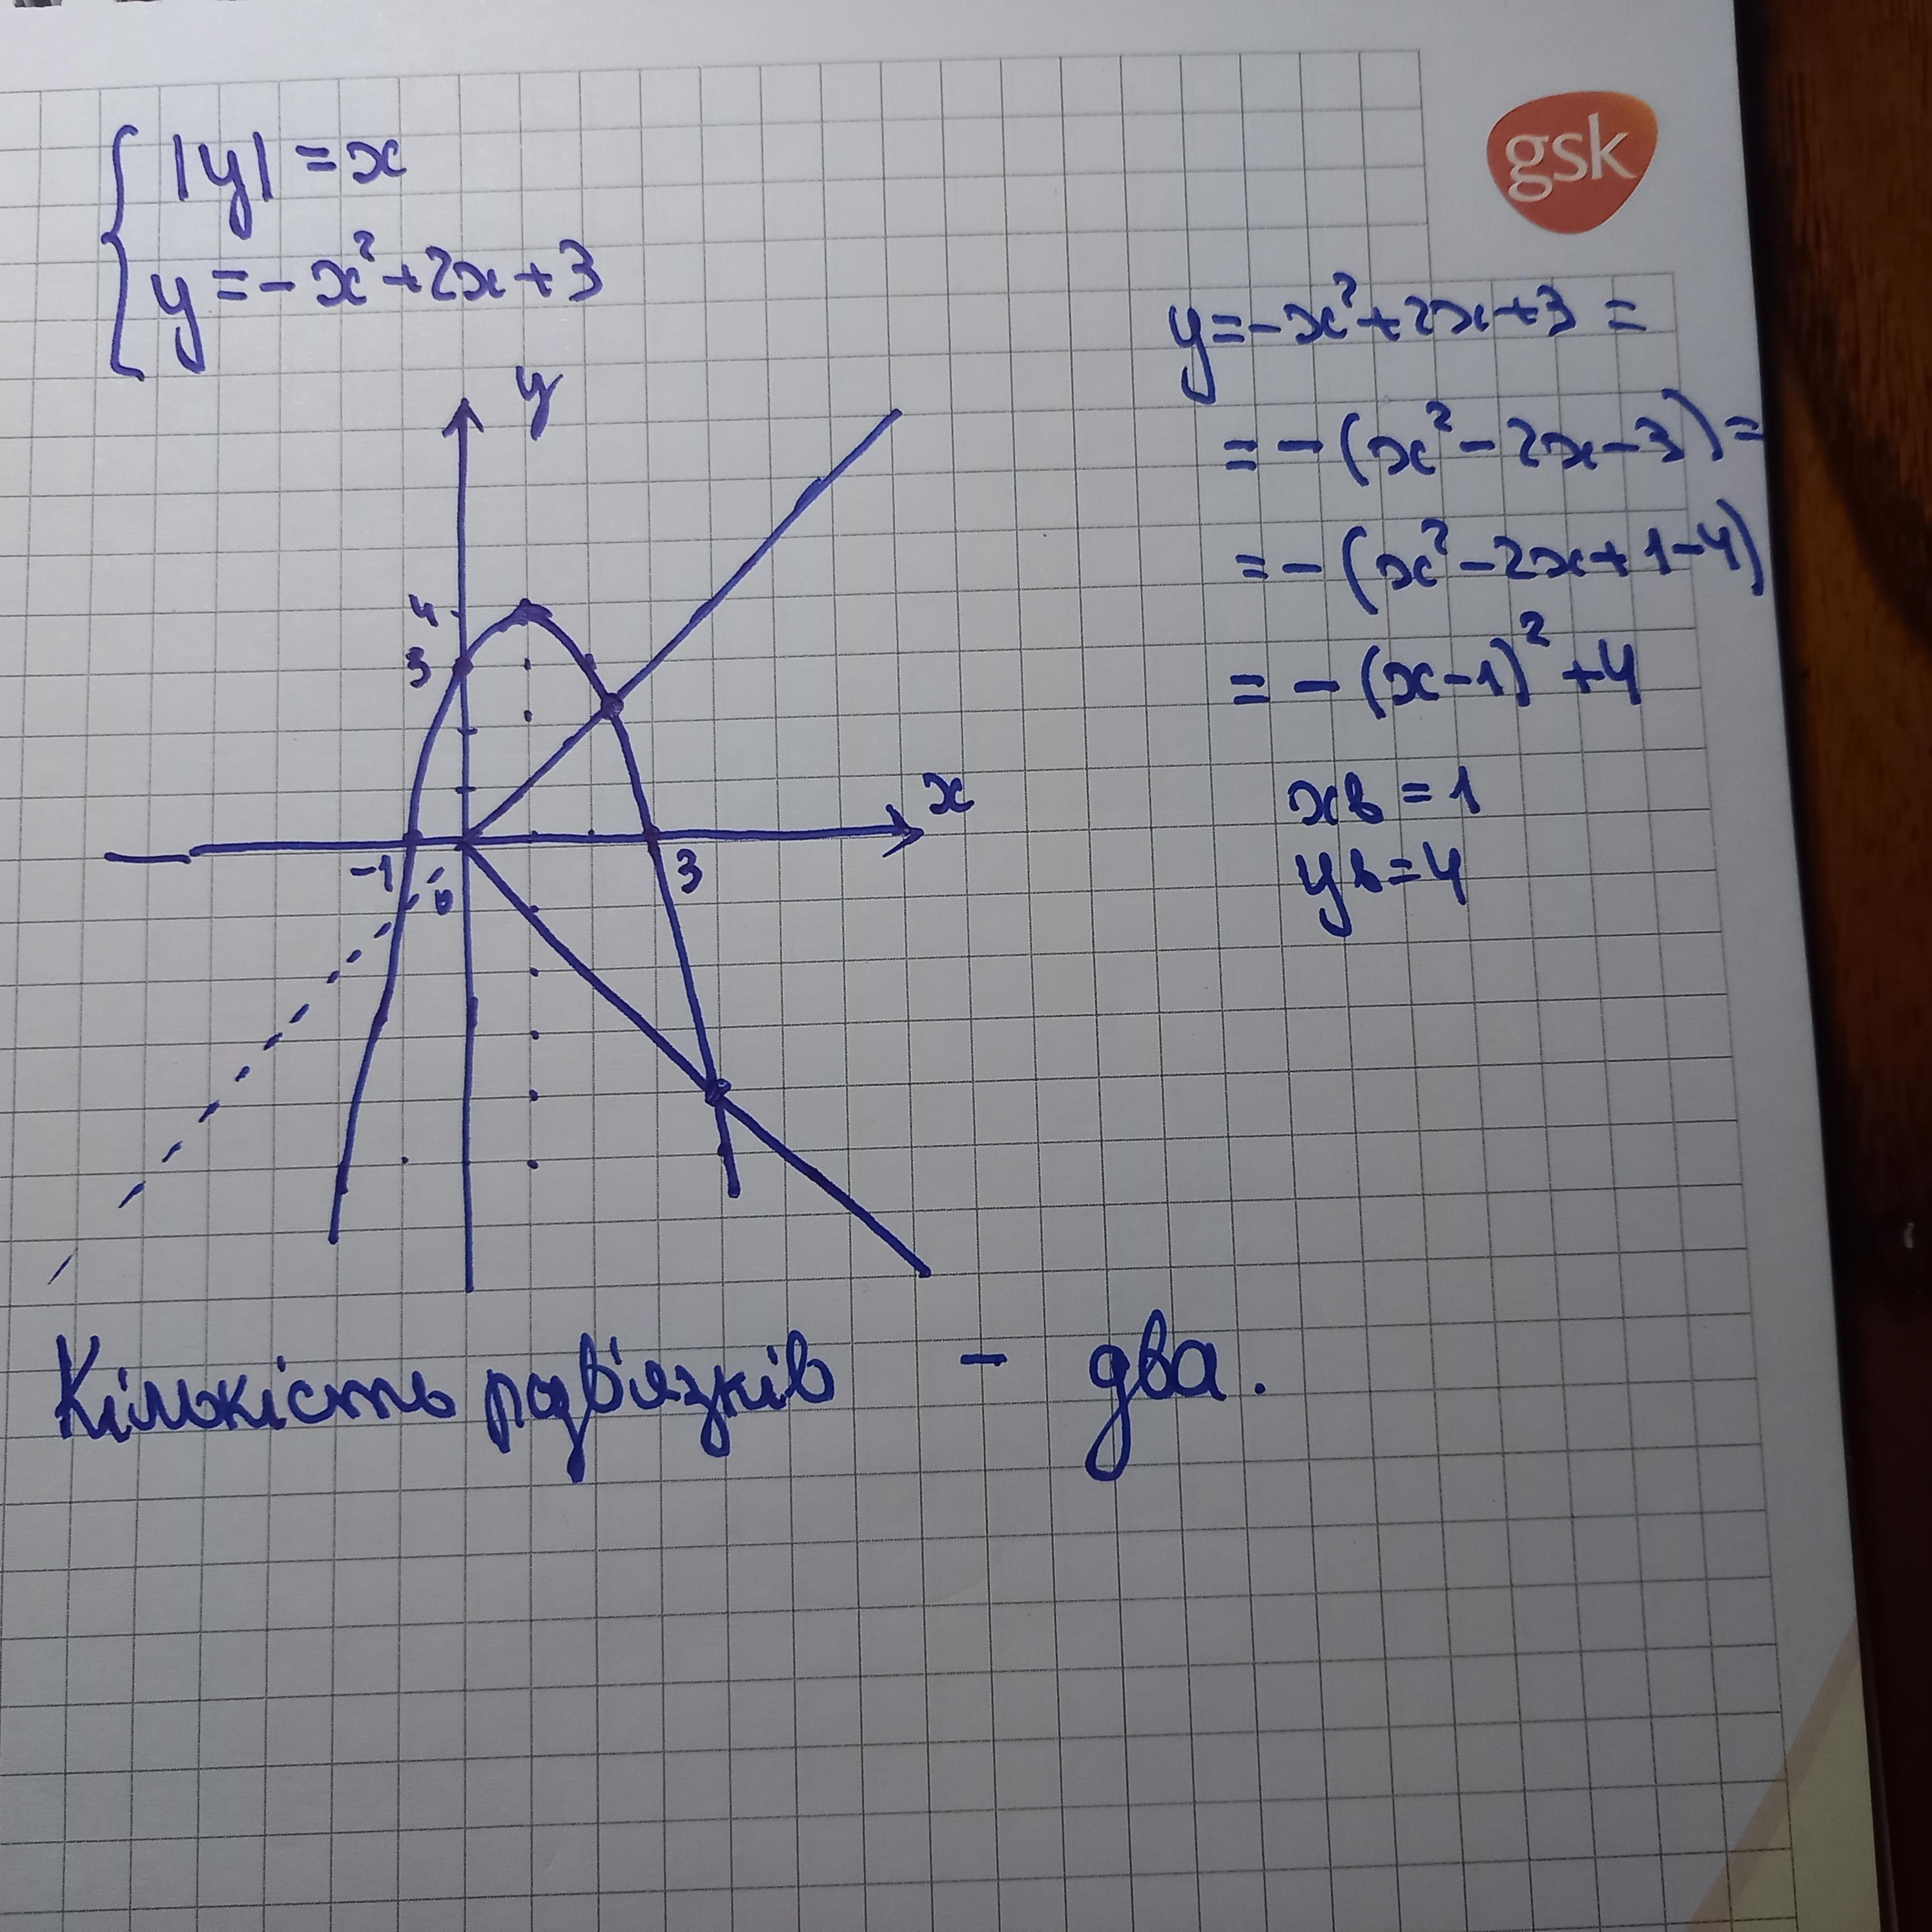 |y| = x
y = - x² + 2x + 3
gsk
y = - x² + 2x + 3 =
= - (x² - 2x - 3) =
= - (x² - 2x + 1 - 4)
= - (x - 1)² + 4
xв = 1
yв = 4
y
4
3
x
-1
0
3
Кількість розв'язків - два.